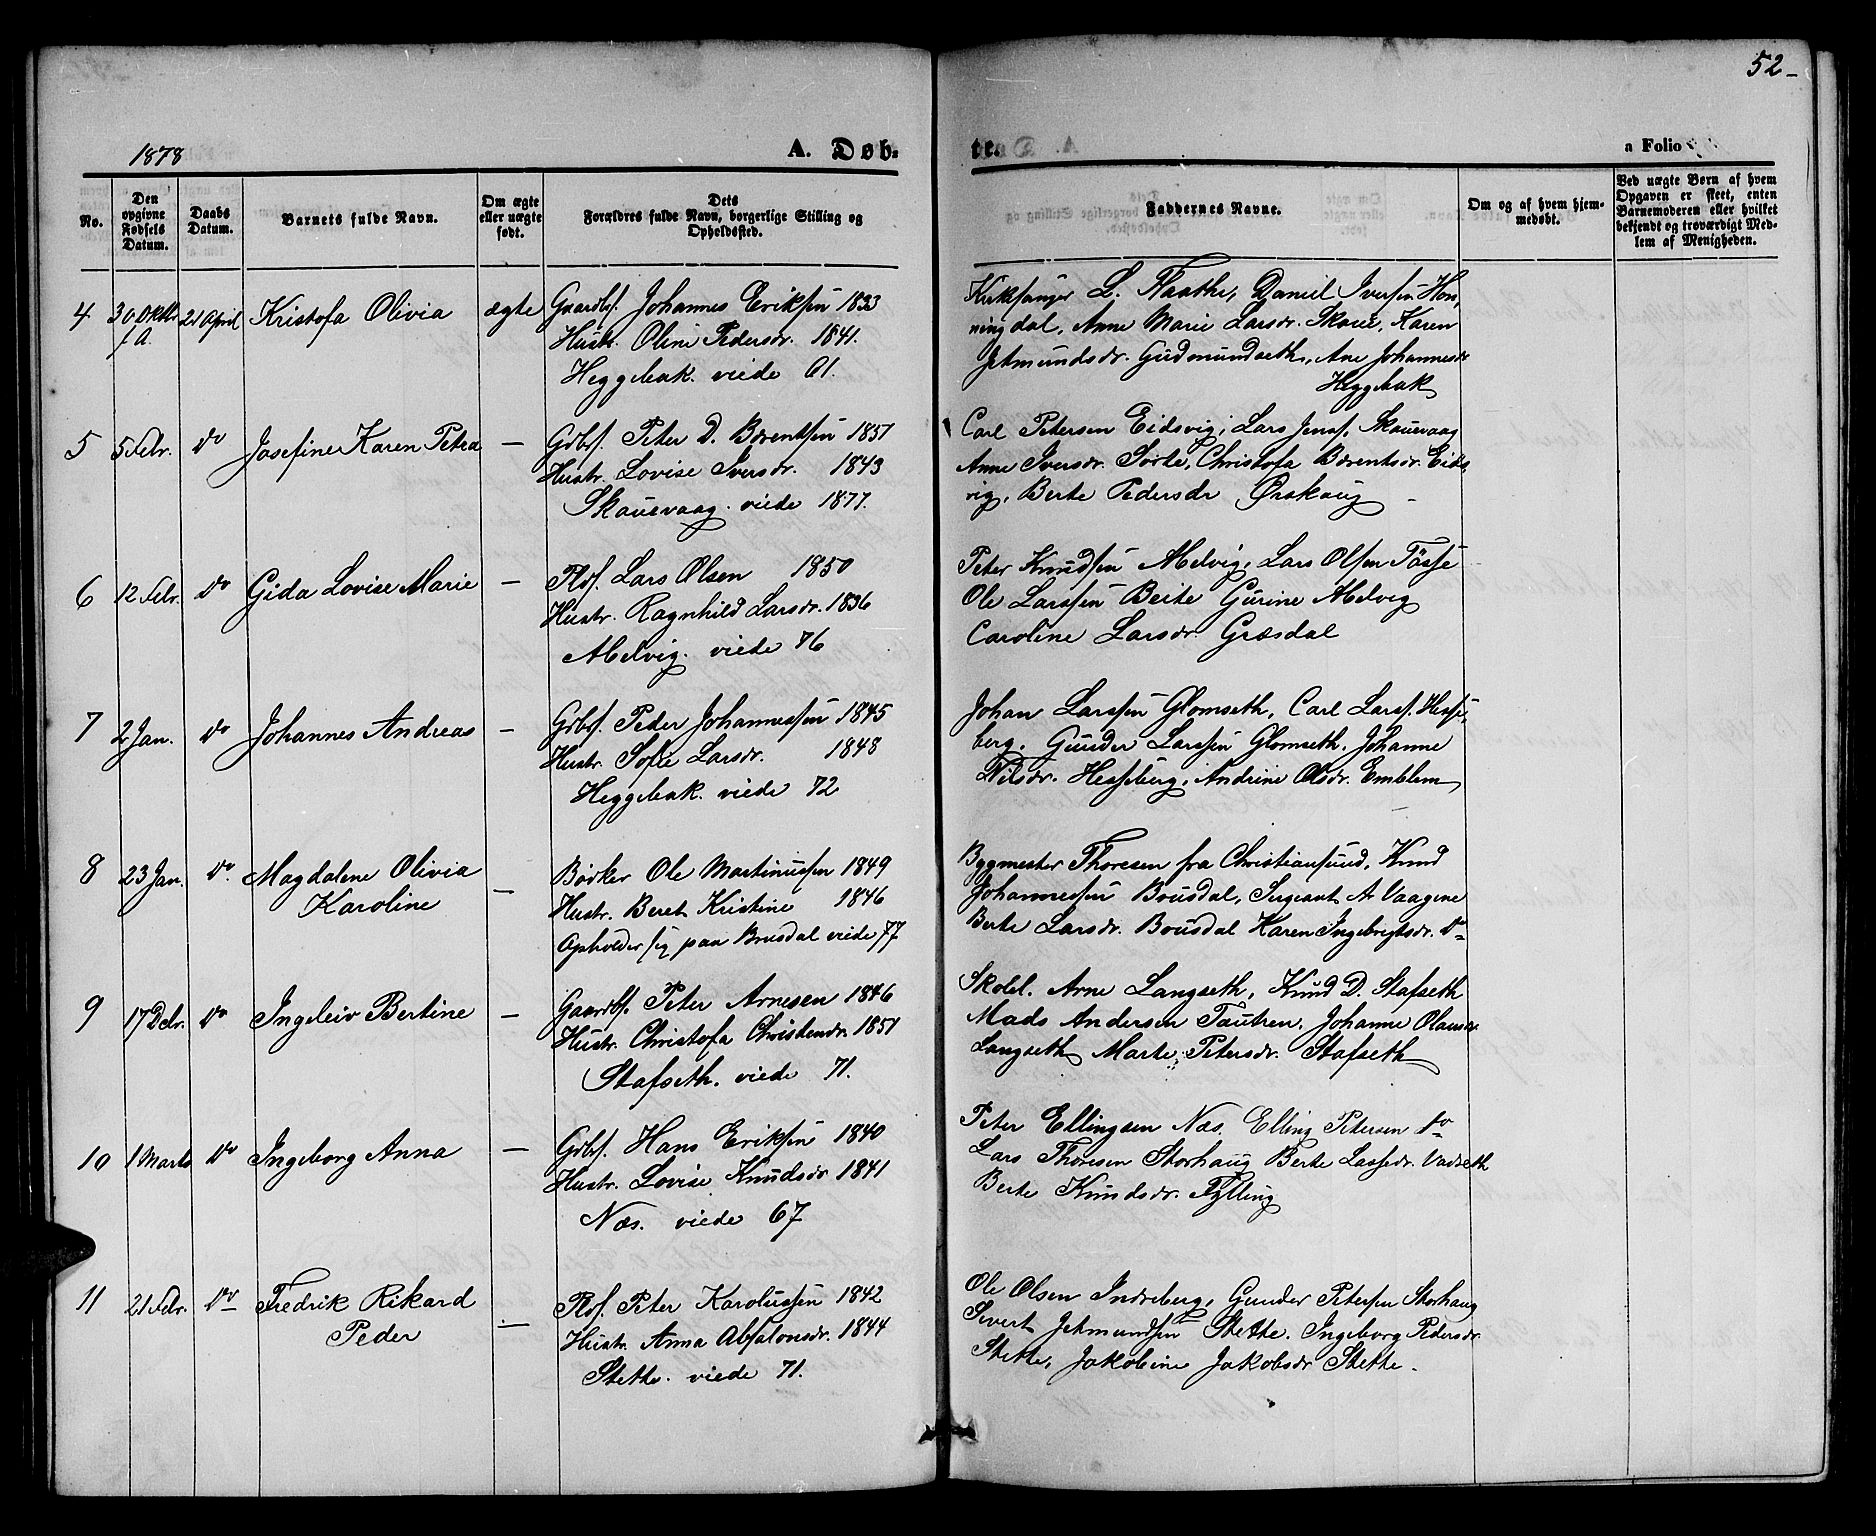 52-
1878
A. Døb-
te.
a Folio
No.
Den opgivne Fødsels Datum.
Daabs Datum.
Barnets fulde Navn.
Om ægte eller uægte født.
Dets Forældres fulde Navn, borgerlige Stilling og Opholdssted.
Faddernes Navne.
Om og af hvem hjem-medøbt.
Ved uægte Børn af hvem Opgaven er skeet, enten Barnemoderen eller hvilket bekjendt og troværdigt Med-lem af Menigheden.
4 30 Oktbr f.A. 21 April Kristofa Olivia ægte Gaardbf. Johannes Eriksen 1833
Hustr. Oline Pedersdr. 1841.
Heggebak. viede 61.
Kirksanger L. Flaathe, Daniel Iversen Hon-
ningdal, Anne Marie Larsdr. Skaue, Karen
Jetmundsdr. Gudmundseth, Ane Johannesdr
Heggebak
5 5 Febr. do Josefine Karen Petra — Gdbf. Peter D. Børentsen 1851
Hustr. Lovise Iversdr. 1843
Skauevaag. viede 1877.
Carl Petersen Eidsvig, Lars Jensf. Skauevaag
Anne Iversdr. Sorte, Christofa Børentsdr. Eids
vig, Berte Pedersdr Ørskaug
6 12 Febr. do Gida Lovise Marie — Pldf. Lars Olsen 1850
Hustr. Ragnhild Larsdr. 1836
Melvig. viede 76
Peter Knudsen Melvig, Lars Olsen Tøsse
Ole Larssen Berte Gurine Melvig
Caroline Larsdr. Græsdal
7 2 Jan. do Johannes Andreas — Gdbf. Peder Johannessen 1845
Hustr. Sofie Larsdr. 1848
Heggebak. viede 72
Johan Larssen Glomseth, Carl Larsf. Hesse-
berg. Gunder Larssen Glomseth. Johanne
Nilsdr. Hesseberg, Andrine Olsdr. Emblem
8 23 Jan. do. Magdalene Olivia
Karoline — Bødker Ole Martinussen 1849
Hustr. Beret Kristine 1846
Opholder sig paa Brusdal viede 77
Bygmester Thoresen fra Christiansund, Knud
Johannessen Brusdal, Sergeant A. Vaagene
Berte Larsdr. Brusdal Karen Ingebrigtsdr. do
9 17 Debr. do Ingeleiv Bertine — Gaardbf. Peter Arnesen 1846
Hustr. Christofa Christendr. 1851
Stafseth. viede 71.
Skolel. Arne Langseth, Knud D. Stafseth
Mads Andersen Tautren. Johanne Olausdr.
Langseth Marte Petersdr. Stafseth
10 1 Marts do Ingeborg Anna — Gdbf. Hans Eriksen 1840
Hustr. Lovise Knudsdr 1841
Næs. viede 67
Peter Ellingsen Næs, Elling Petersen do
Lars Thoresen Storhaug Berte Lassedr. Vadseth
Berte Knudsdr. Fylling
11 21 Febr. do Fredrik Rikard
Peder — Pldf. Peter Karolussen 1842
Hustr. Anna Absalonsdr. 1844
Stette. viede 71.
Ole Olsen Indreberg, Gunder Petersen Storhaug
Sivert Jetmundsen Stette. Ingeborg Pedersdr.
Stette, Jakobine Jakobsdr Stette.